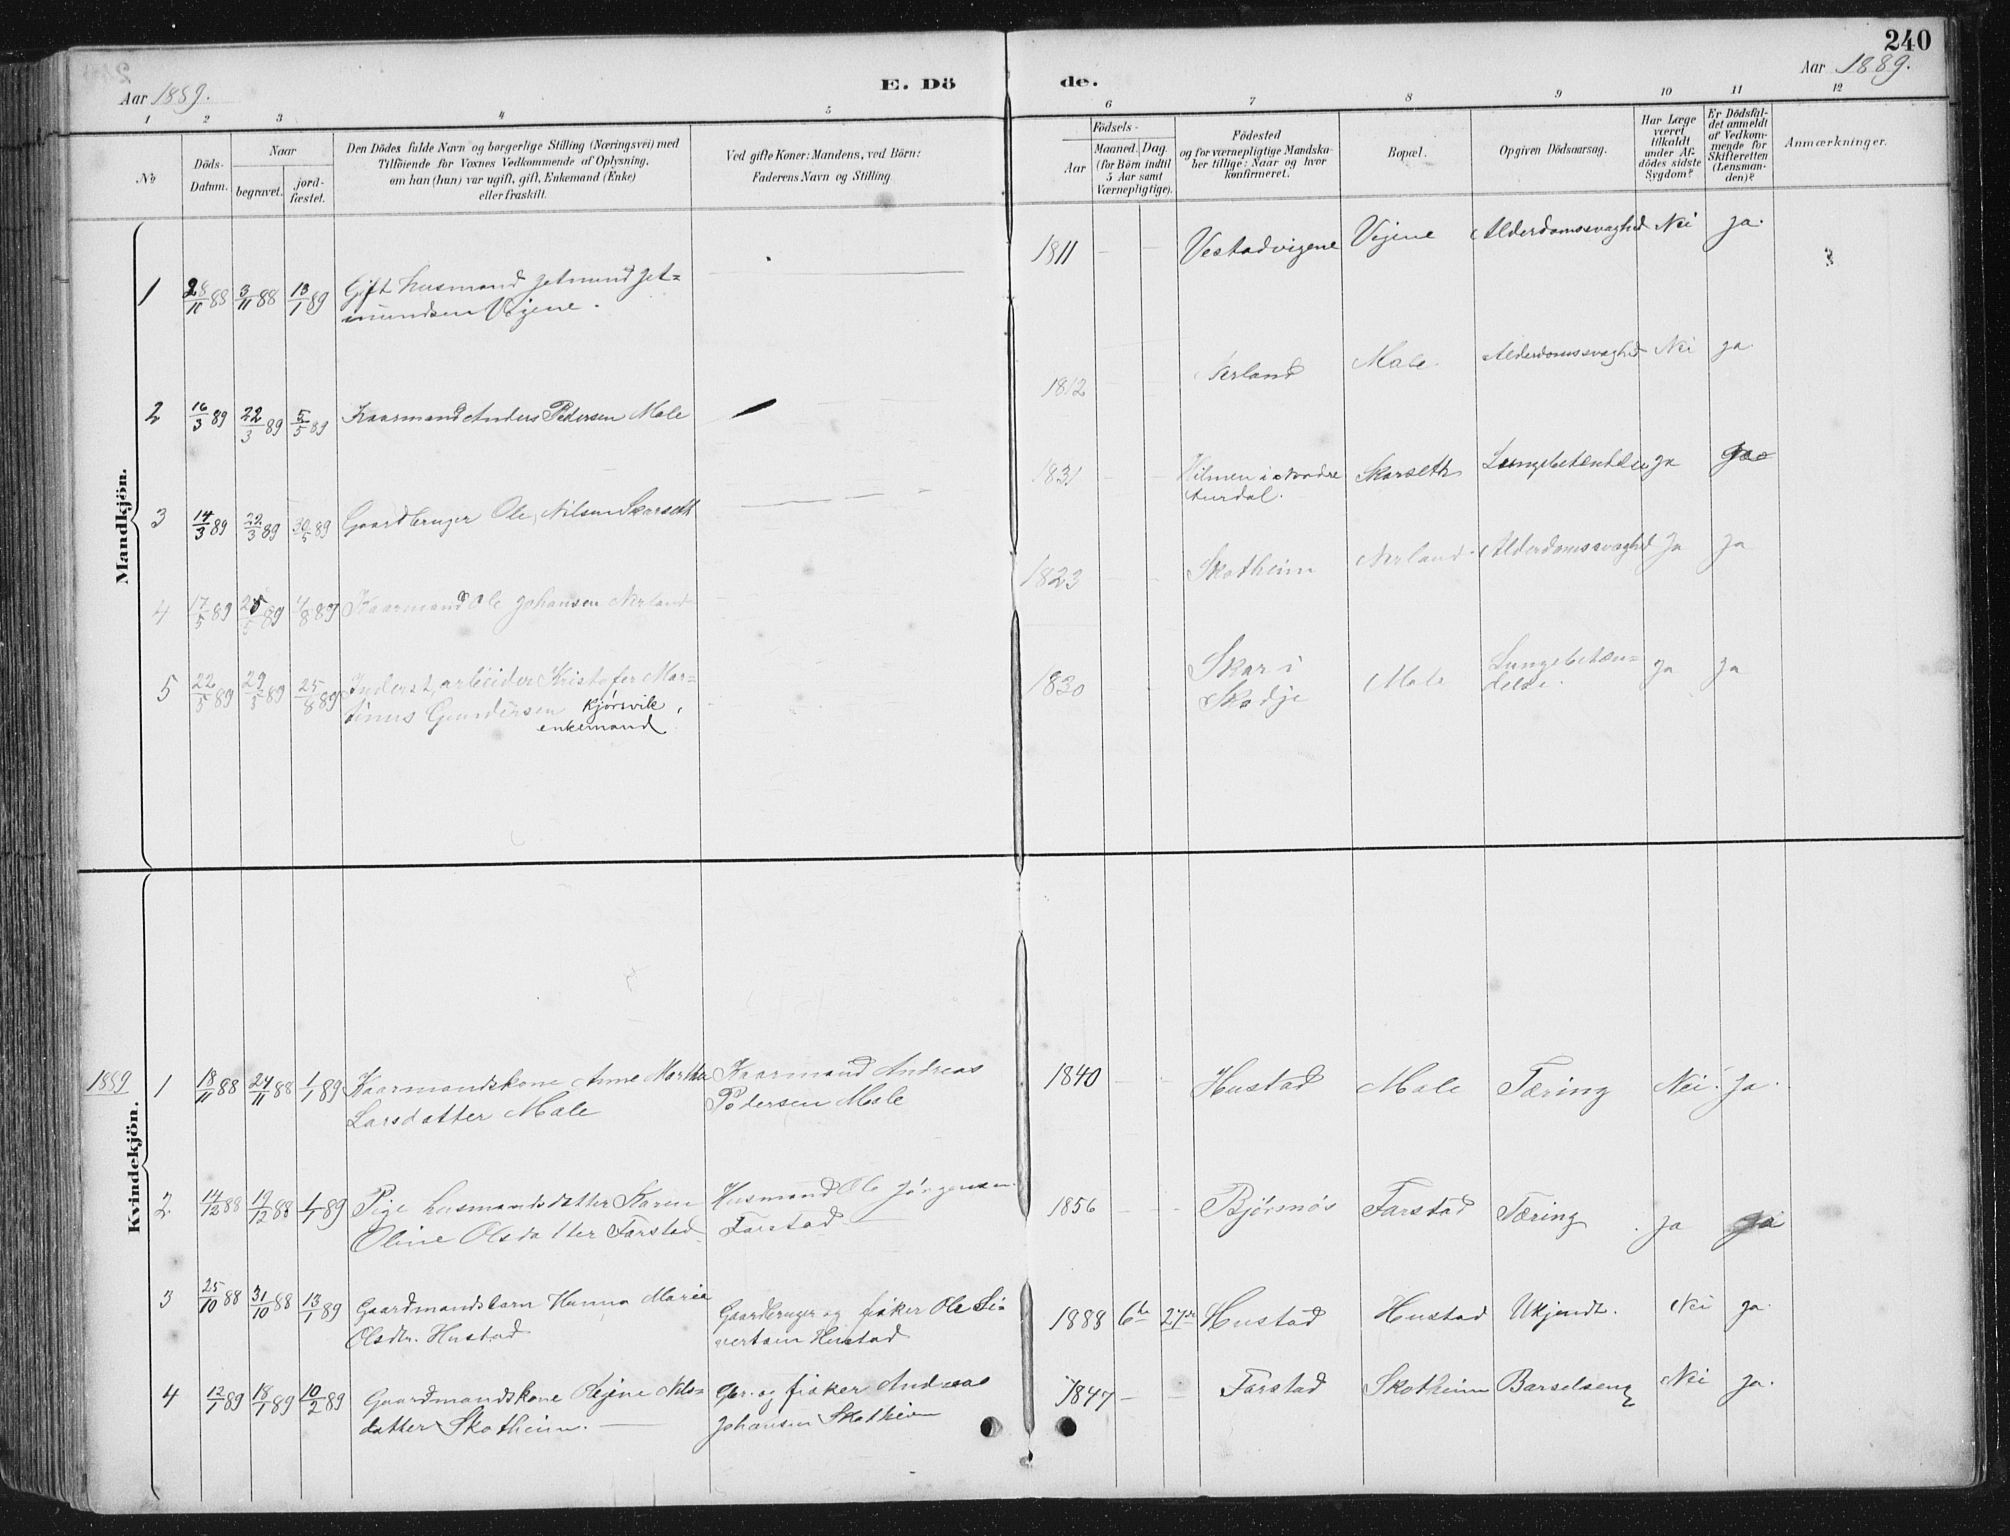 240
Aar 1889.
E. Dö de.
Aar 1889.
1 2 3 4 5 6 7 8 9 10 11 12
No
Döds-Datum.
Naar
begravet.
jordfæstet.
Den Dödes fulde Navn og borgerlige Stilling (Næringsvei) med
Tilföiende for Voxnes Vedkommende af Oplysning,
om han (hun) var ugift, gift, Enkemand (Enke)
eller fraskilt.
Ved gifte Koner: Mandens, ved Börn:
Faderens Navn og Stilling.
Födsels-
Aar
Maaned. Dag.
(for Börn indtil
5 Aar samt
Værnepligtige).
Födested
og for værnepligtige Mandska-
ber tillige: Naar og hvor
konfirmeret.
Bopæl.
Opgiven Dödsaarsag.
Har Læge
været
tilkaldt
under Af-
dödes sidste
Sygdom?
Er Dödsfal-
det anmeldt
af Vedkom-
mende for
Skifteretten
(Lensman-
den)?
Anmærkninger.
Mandkjön.
1 28/10 88 3/11 88 13/1 89 Gift Husmand Jetmund Jet=
mundsen Vigene. 1811 Vestadvigene Vigene Alderdomssvaghed Nei ja.
3
2 16/3 89 22/3 89 5/5 89 Kaarmand Anders Pedersen Male 1812 Nerland Male Alderdomssvaghed Nei ja
3 14/3 89 22/3 89 30/5 89 Gaardbruger Ole Nilsen Skarseth 1831 Hilmen i
Aurdal. Skarseth Lungebetændelse ja ja
4 17/5 89 25/5 89 4/8 89 Kaarmand Ole Johansen Nerland 1823 Skotheim Nerland Alderdomssvaghed Ja Ja
5 22/5 89 29/5 89 25/8 89 Inderst, arbeider Kristofer Mar=
tinus Gundersen Kjørsvik,
enkemand 1830 Skar i
Skodje Male Lungebetæn=
delse. ja ja
Kvindekjön.
1889 1 18/11 88 24/11 88 1/1 89 Kaarmandskone Anne Martha
Larsdatter Male Kaarmand Andreas
Pedersen Male 1840 Hustad Male Tæring Nei. Ja.
2 14/12 88 19/12 88 1/1 89 Pige husmandsdatter Karen
Oline Olsdatter Farstad Husmand Ole Jørgensen
Farstad 1856 Bjørmøs Farstad Tæring ja ja
3 25/10 88 31/10 88 13/1 89 Gaardmandsbarn Hanna Marie
Olsdtr. Hustad Gaardbruger og fisker Ole Si=
vertsen Hustad 1888 6te 27de Hustad Hustad Ukjendt. Nei ja.
4 12/1 89 18/1 89 10/2 89 Gaardmandskone Rejine Nils=
datter Skotheim. Gbr. og fisker Andreas
Johansen Skotheim 1847 Farstad Skotheim Barselseng Nei ja.